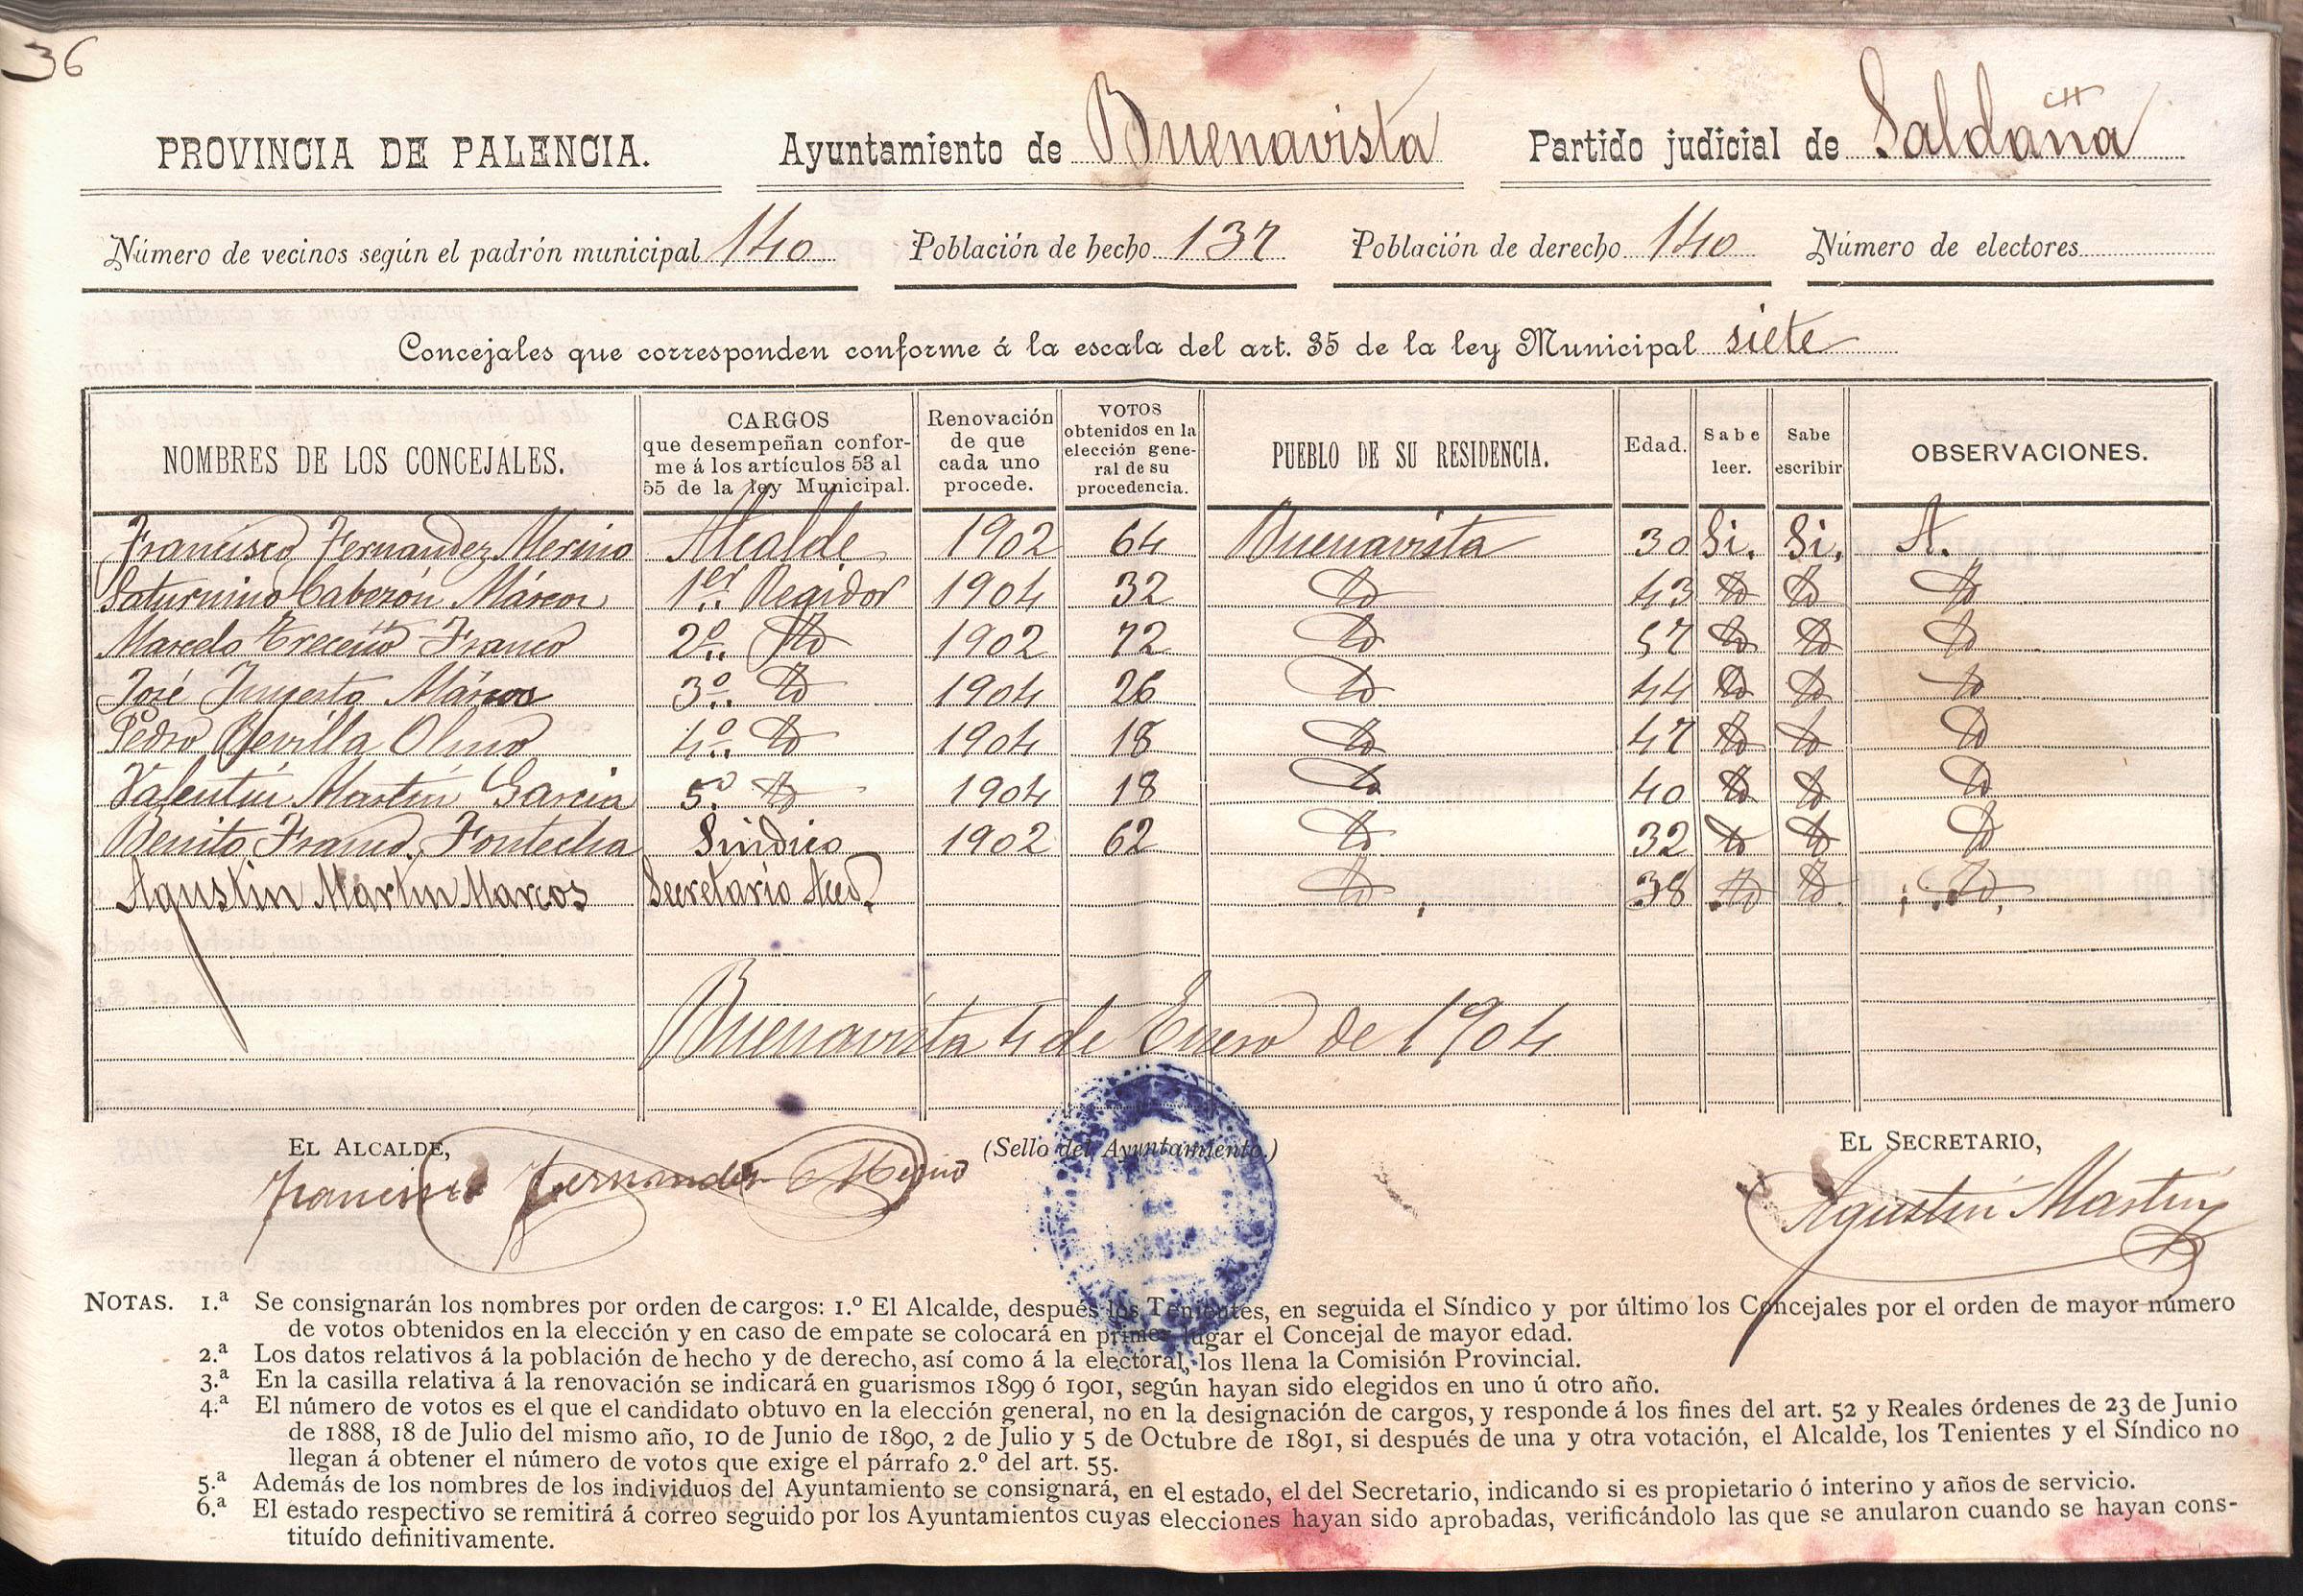 36
PROVINCIA DE PALENCIA. Ayuntamiento de Buenavista Partido judicial de Saldaña
Número de vecinos según el padrón municipal 140 Población de hecho 137 Población de derecho 140 Número de electores
Concejales que corresponden conforme á la escala del art. 35 de la ley Municipal siete
NOMBRES DE LOS CONCEJALES.
CARGOS
que desempeñan confor-
me á los artículos 53 al
55 de la ley Municipal.
Renovación
de que
cada uno
procede.
VOTOS
obtenidos en la
elección gene-
ral de su
procedencia.
PUEBLO DE SU RESIDENCIA.
Edad.
Sabe
leer.
Sabe
escribir
OBSERVACIONES.
Francisco Fernandez Merino Alcalde 1902 64 Buenavista 30 Si. Si. A.
Saturnino Cabezón Márcos 1er Regidor 1904 32 Id 43 Id Id Id
Marcelo Treceño Franco 2º Id 1902 72 Id 57 Id Id Id
José Inyesto Márcos 3º Id 1904 26 Id 44 Id Id Id
Pedro Revilla Olmo 4º Id 1904 18 Id 47 Id Id Id
Valentín Martín Garcia 5º Id 1904 18 Id 40 Id Id Id
Benito Franco Fontecha Sindico 1902 62 Id 32 Id Id Id
Agustin Martin Marcos Secretario Id 38 Id Id Id
Buenavista 4 de Enero de 1904
EL ALCALDE, (Sello del Ayuntamiento.) EL SECRETARIO,
Francisco Fernandez Merino Agustin Martin
NOTAS. 1.ª Se consignarán los nombres por orden de cargos: 1.º El Alcalde, después los Tenientes, en seguida el Síndico y por último los Concejales por el orden de mayor número
de votos obtenidos en la elección y en caso de empate se colocará en primer lugar el Concejal de mayor edad.
2.ª Los datos relativos á la población de hecho y de derecho, así como á la electoral, los llena la Comisión Provincial.
3.ª En la casilla relativa á la renovación se indicará en guarismos 1899 ó 1901, según hayan sido elegidos en uno ú otro año.
4.ª El número de votos es el que el candidato obtuvo en la elección general, no en la designación de cargos, y responde á los fines del art. 52 y Reales órdenes de 23 de Junio
de 1888, 18 de Julio del mismo año, 10 de Junio de 1890, 2 de Julio y 5 de Octubre de 1891, si después de una y otra votación, el Alcalde, los Tenientes y el Síndico no
llegan á obtener el número de votos que exige el párrafo 2.º del art. 55.
5.ª Además de los nombres de los individuos del Ayuntamiento se consignará, en el estado, el del Secretario, indicando si es propietario ó interino y años de servicio.
6.ª El estado respectivo se remitirá á correo seguido por los Ayuntamientos cuyas elecciones hayan sido aprobadas, verificándolo las que se anularon cuando se hayan cons-
tituído definitivamente.